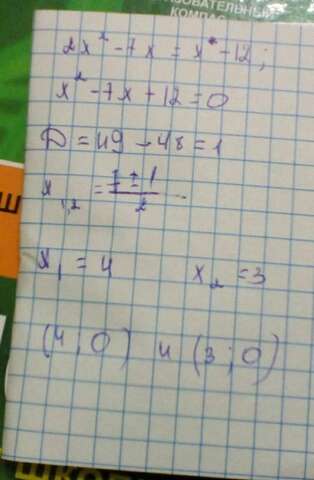 РАЗОВАТЕЛЬНЫЙ
КОМПАС
2x² - 7x = x² - 12;
x² - 7x + 12 = 0
D = 49 - 48 = 1
x₁,₂ = (7 ± 1)/2
x₁ = 4 x₂ = 3
(4; 0) и (3; 0)
Ш
ШКО